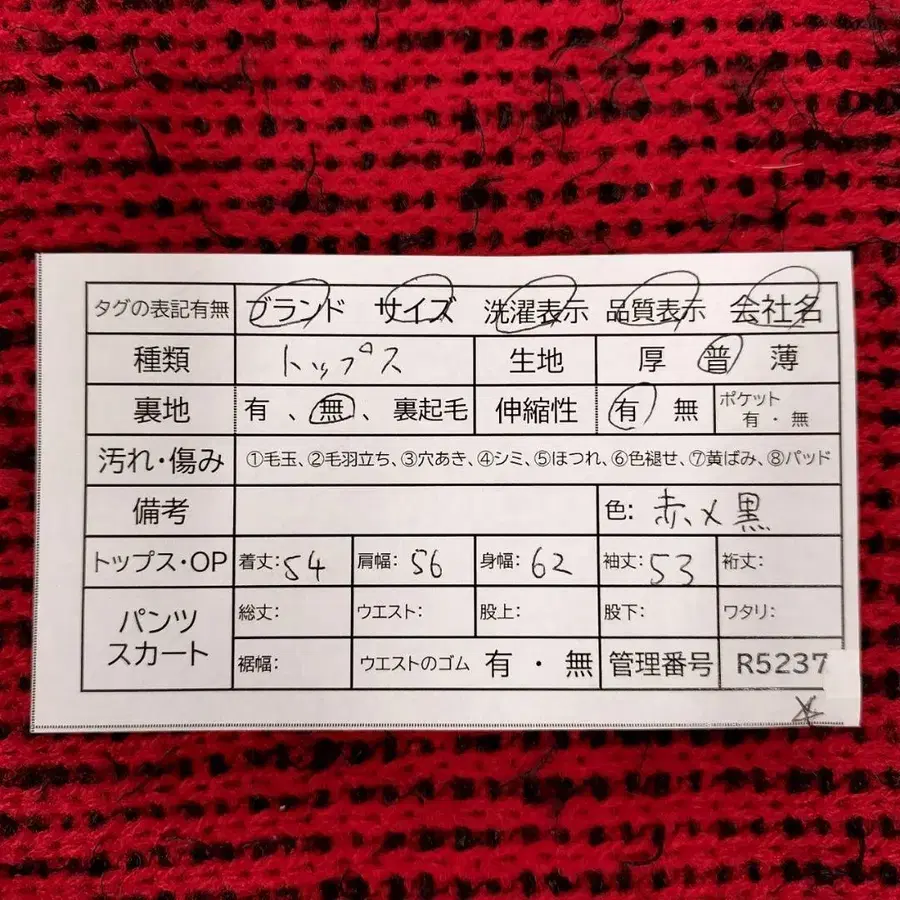 タグの表記有無 ブランド サイズ 洗濯表示 品質表示 会社名
種類 トップス 生地 厚 普 薄
裏地 有 、 無 、 裏起毛 伸縮性 有 無 ポケット 有 ・ 無
汚れ・傷み ①毛玉、②毛羽立ち、③穴あき、④シミ、⑤ほつれ、⑥色褪せ、⑦黄ばみ、⑧パッド
備考 色: 赤×黒
トップス・OP 着丈: 54 肩幅: 56 身幅: 62 袖丈: 53 裄丈:
パンツ スカート 総丈: ウエスト: 股上: 股下: ワタリ:
裾幅: ウエストのゴム 有 ・ 無 管理番号 R5237